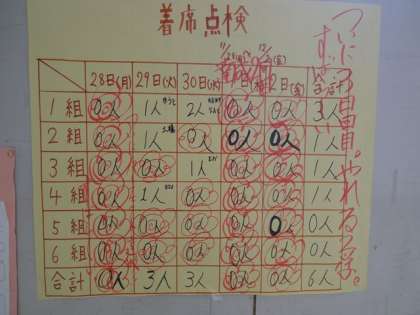 着席点検
28日(月) 29日(火) 30日(水) 1日(木) 2日(金) 合計
1組 0人 1人 2人 0人 0人 3人
2組 0人 1人 0人 0人 0人 1人
3組 0人 0人 1人 0人 0人 1人
4組 0人 1人 0人 0人 0人 1人
5組 0人 0人 0人 0人 0人 0人
6組 0人 0人 0人 0人 0人 0人
合計 0人 3人 3人 0人 0人 6人
ついに3日目。やれるな。